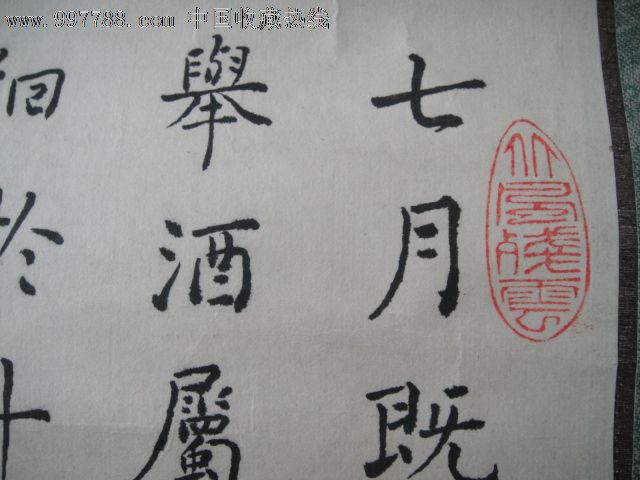 www.997788.com 中国收藏热线
七月既
舉酒屬
徊於斗